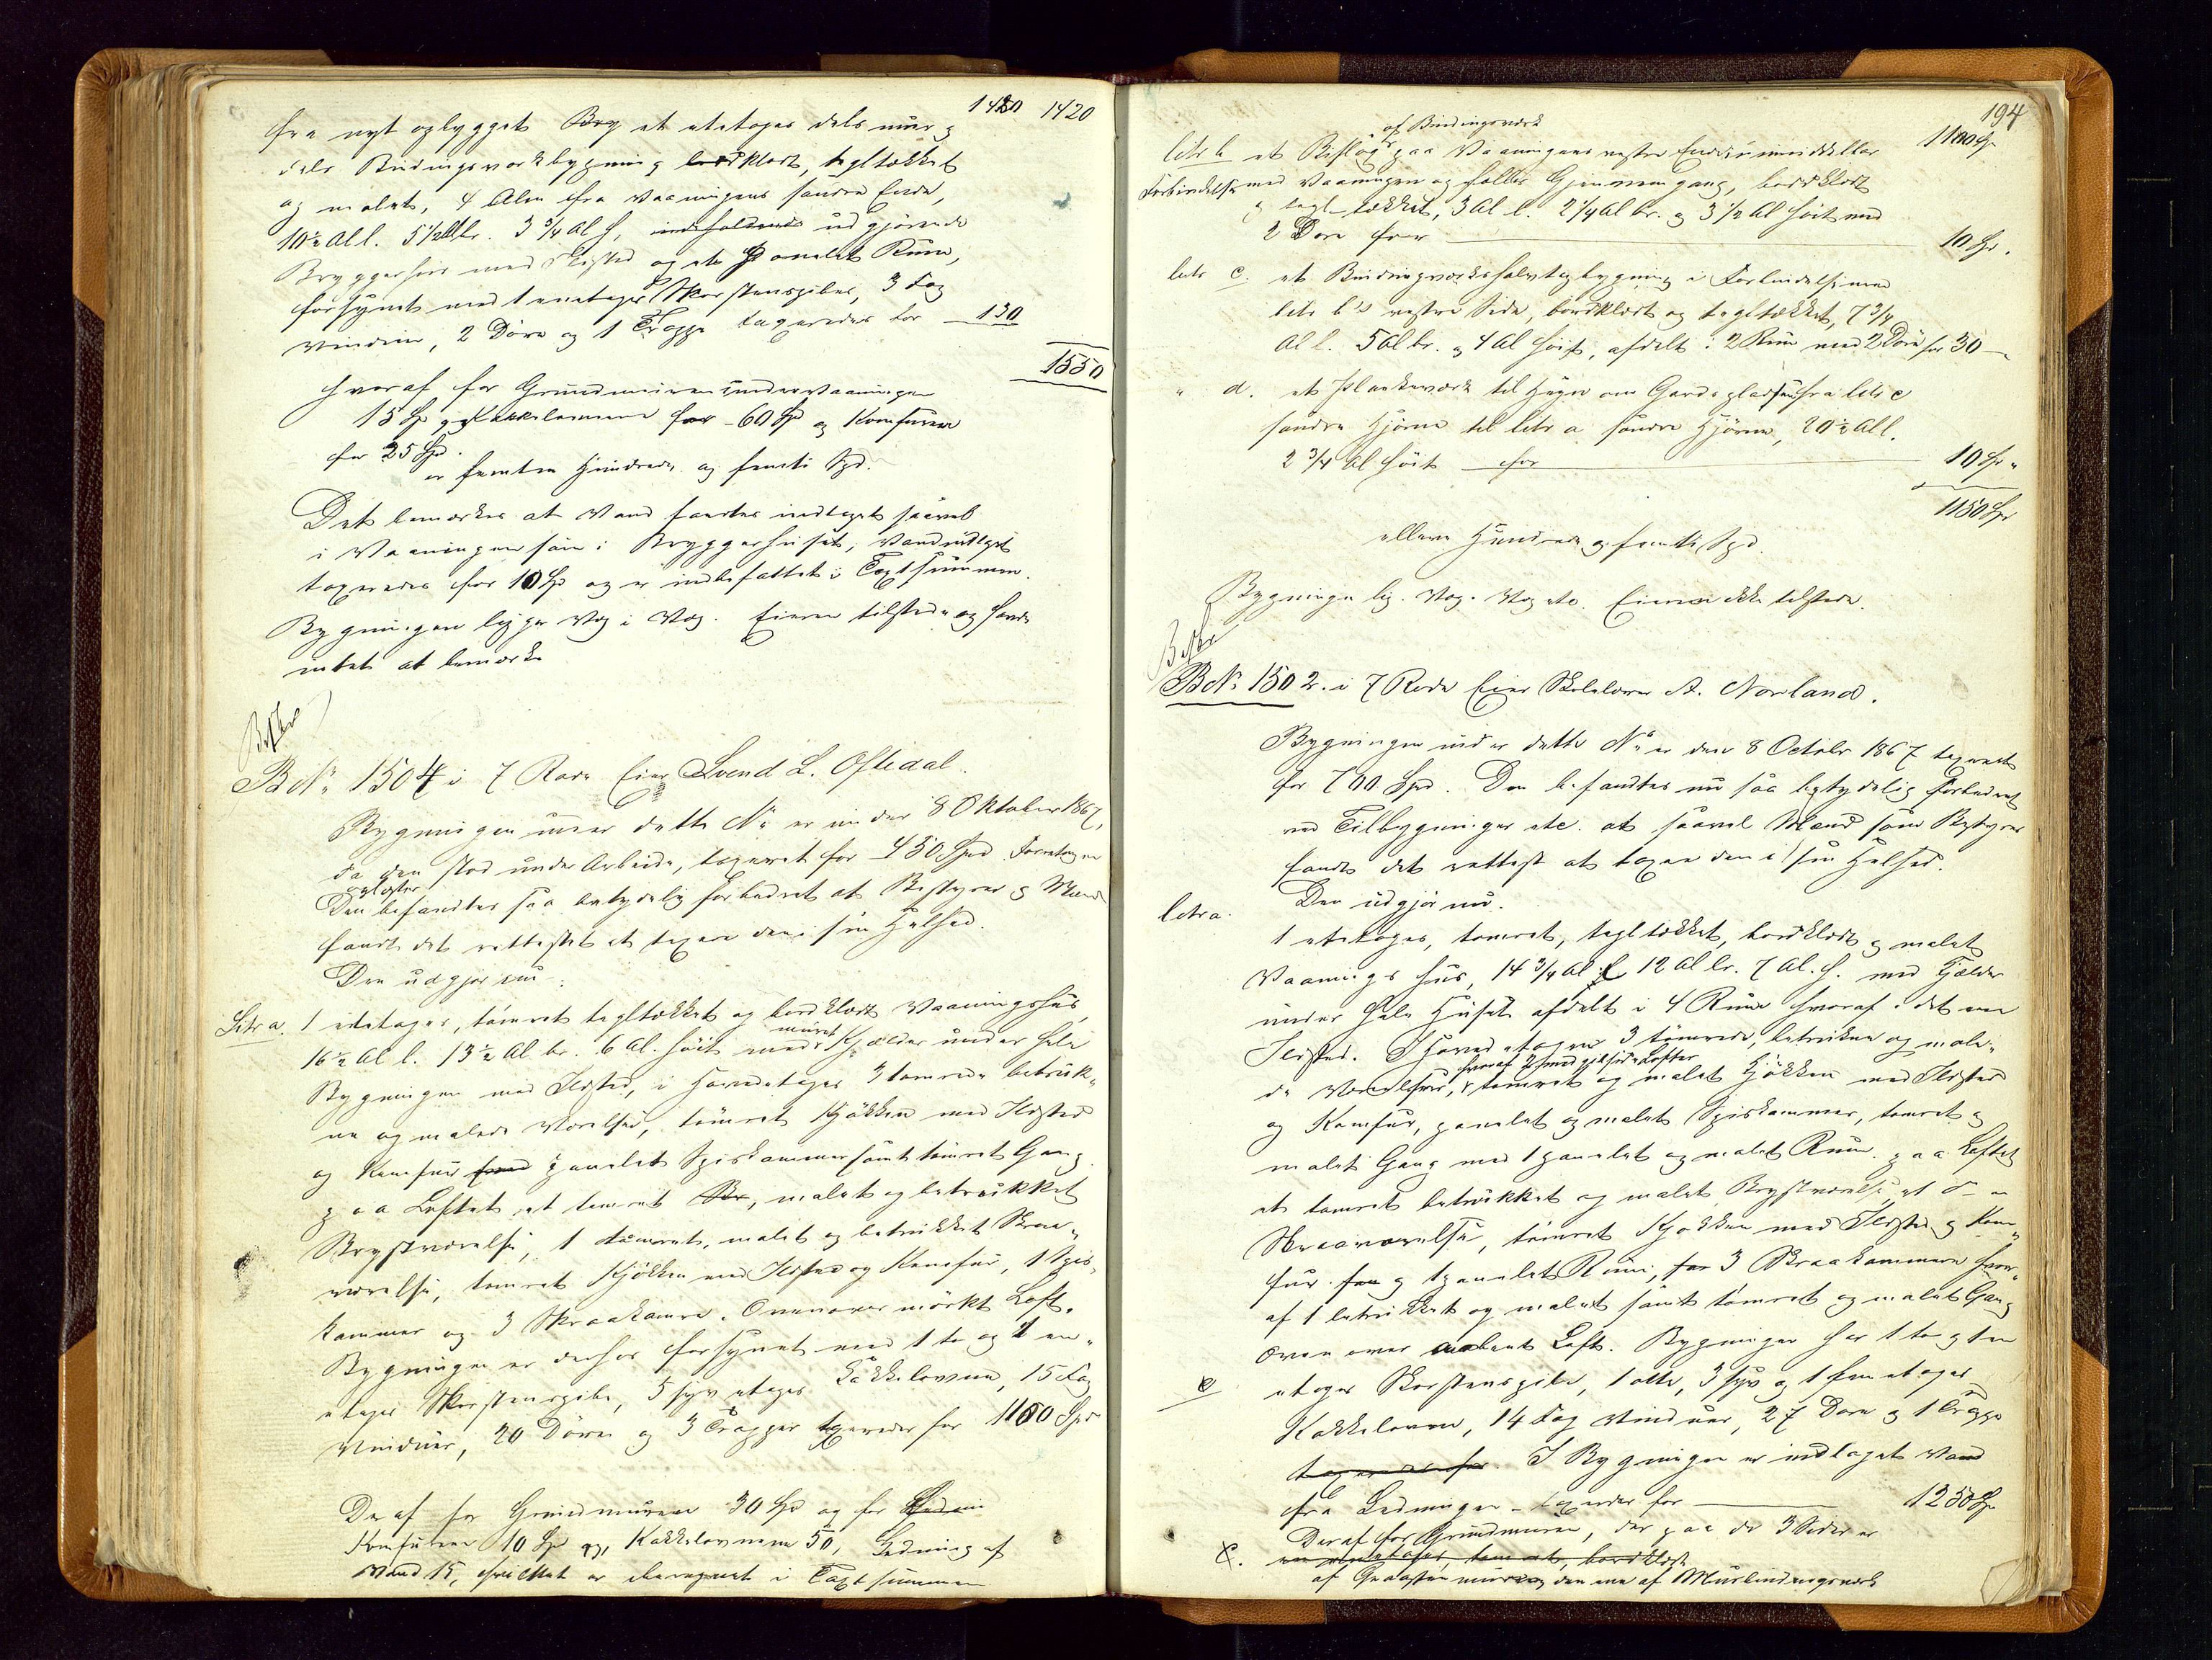 1420 1420
fra nyt opbygget et etetages dels muur og
dels Bindingsverksbygning bordklædt, tagltækket
og malet, 4 Alen fra Vaaningens søndre Ende,
10½ Al l. 5½ Al br. 3¾ Al h, indeholdende udgjørende
Bryggerhuus med Ildsted og et panelet Rum,
forsynet med 1 enetages Skorstenspibe, 3 Fag
Vinduer, 2 Døre og 1 Trappe taxeredes for 130
1550
hvoraf for Grundmuren under Vaaningen
15 Spd og Kakkelovnene for 60 Spd og Komfuren
for 25 Spd.
er femten Hundrede og femti Spd.
Det bemærkes at Vand fandtes indtaget saavel
i Vaaningen som i Bryggerhuset; Vandindlæget
taxeredes for 10 Spd og er indbefattet i Taxtsummen.
Bygningen ligger Væg i Væg. Eieren tilstede og havde
intet at bemærke
B No 1504 i 7 Rode Eier Svend L. Oftedal.
Bygningen under dette No er under 8 Oktober 1867,
da den stod under Arbeide, taxeret for 450 Spd.
Den befandtes saa betydelig forbedret at Bestyrer og Mænd
fandt det rettest at taxere den i sin Helhed.
Den udgjør nu:
Litr a. 1 etetages, tømret tagltækket og bordklædt Vaaningshus,
16½ Al l. 13½ Al. br. 6 Al. høit med muret Kjælder under hele
Bygningen med Ildsted, i Hovedetagen 3 tømrede betrukne
og malede Værelser, tømret Kjøkken med Ildsted
og Komfur panelet Spiskammer samt tømret Gang.
paa Loftet et tømret, malet og betrukket
Brystværelse, 1 tømret, malet og betrukket Skraaværelse,
tømret Kjøkken med Ildsted og Komfur, 1 Spiskammer
og 3 Skraakamre. Ovenover mørkt Loft.
Bygningen er derhos forsynet med 1 to og 1 enetages
Skorstenspibe, 5 syv etages Kakkelovnene, 15 Fag
Vinduer, 20 Døre og 3 Trapper taxeredes for 1100 Spd
Deraf for Grundmuren 30 Spd og for
Komfurene 10 Spd og, Kakkelovnene 50, Ledning af
Vand 15, hvilket er iberegnet i Taxtsummen
194
1100 Sp
litr b et Bislag af Bindingsverk paa Vaaningens vestre Ende i umiddelbar
Forbindelse med Vaaningen og fælles Gjennemgang, bordklædt
og tagltækket, 3 Al l. 2¼ Al br. og 3½ Al høit med
2 Døre for 10 Sp.
litr c. et Bindingsverks halvtagbygning i Forbindelse med
litr b's vestre Side, bordklædt og tagltækket, 7¾
Al l. 5 Al br. og 4 Al høit, afdelt i 2 Rum med 2 Døre for 30
" d. et Plankeverk til Hegn om Gardspladsen fra litr c
søndre Hjørne til litr a søndre Hjørne, 20½ Al l.
2¾ Al høit for 10 Sp
1150 Sp
elleve Hundrede og femti Spd.
Bygningen lig. Væg i Væg etc. Eieren ikke tilstede.
B No 1502. i 7 Rode Eier Skolelærer A. Norland.
Bygningen under dette No er den 8 October 1867 taxeret
for 700 Spd. Den befandtes nu saa betydelig forbedret
ved Tilbygninger etc. at saavel Mænd som Bestyrer
fandt det rettest at taxere den i sin Helhed.
Den udgjør nu.
litr a.
1 etetages, tømret, tagltækket, bordklædt og malet
Vaaningshus, 14¾ Al. l 12 Al br. 7 Al. h. med Kjælder
under hele Huset afdelt i 4 Rum hvoraf i det ene
Ildsted. I Hovedetagen 3 tømrede, betrukne og malede
Værelser, hvoraf 2 med gibsede Lofter, tømret og malet Kjøkken med Ildsted
og Komfur, panelet og malet Spiskammer, tømret og
malet Gang med 1 panelet og malet Rum. paa Loftet
et tømret betrukket og malet Brystværelse, et do
Skraaværelse, tømret Kjøkken med Ildsted og Komfur
og 1 panelet Rum, 3 Skraakammere hvoraf
1 betrukket og malet samt tømret og malet Gang
Oven over Loft. Bygningen har 1 to og 1 en
etages Skorstenspibe, 1 otte, 3 syv og 1 fem etages
Kakkelovne, 14 Fag Vinduer, 27 Døre og 1 Trappe
taxeredes for. I Bygningen er indlaget Vand
fra Ledningen taxeredes for 1250 Sp
Deraf for Grundmuren, der paa de 3 Sider er
af Graasten muur og den ene af Muurbindingsverk